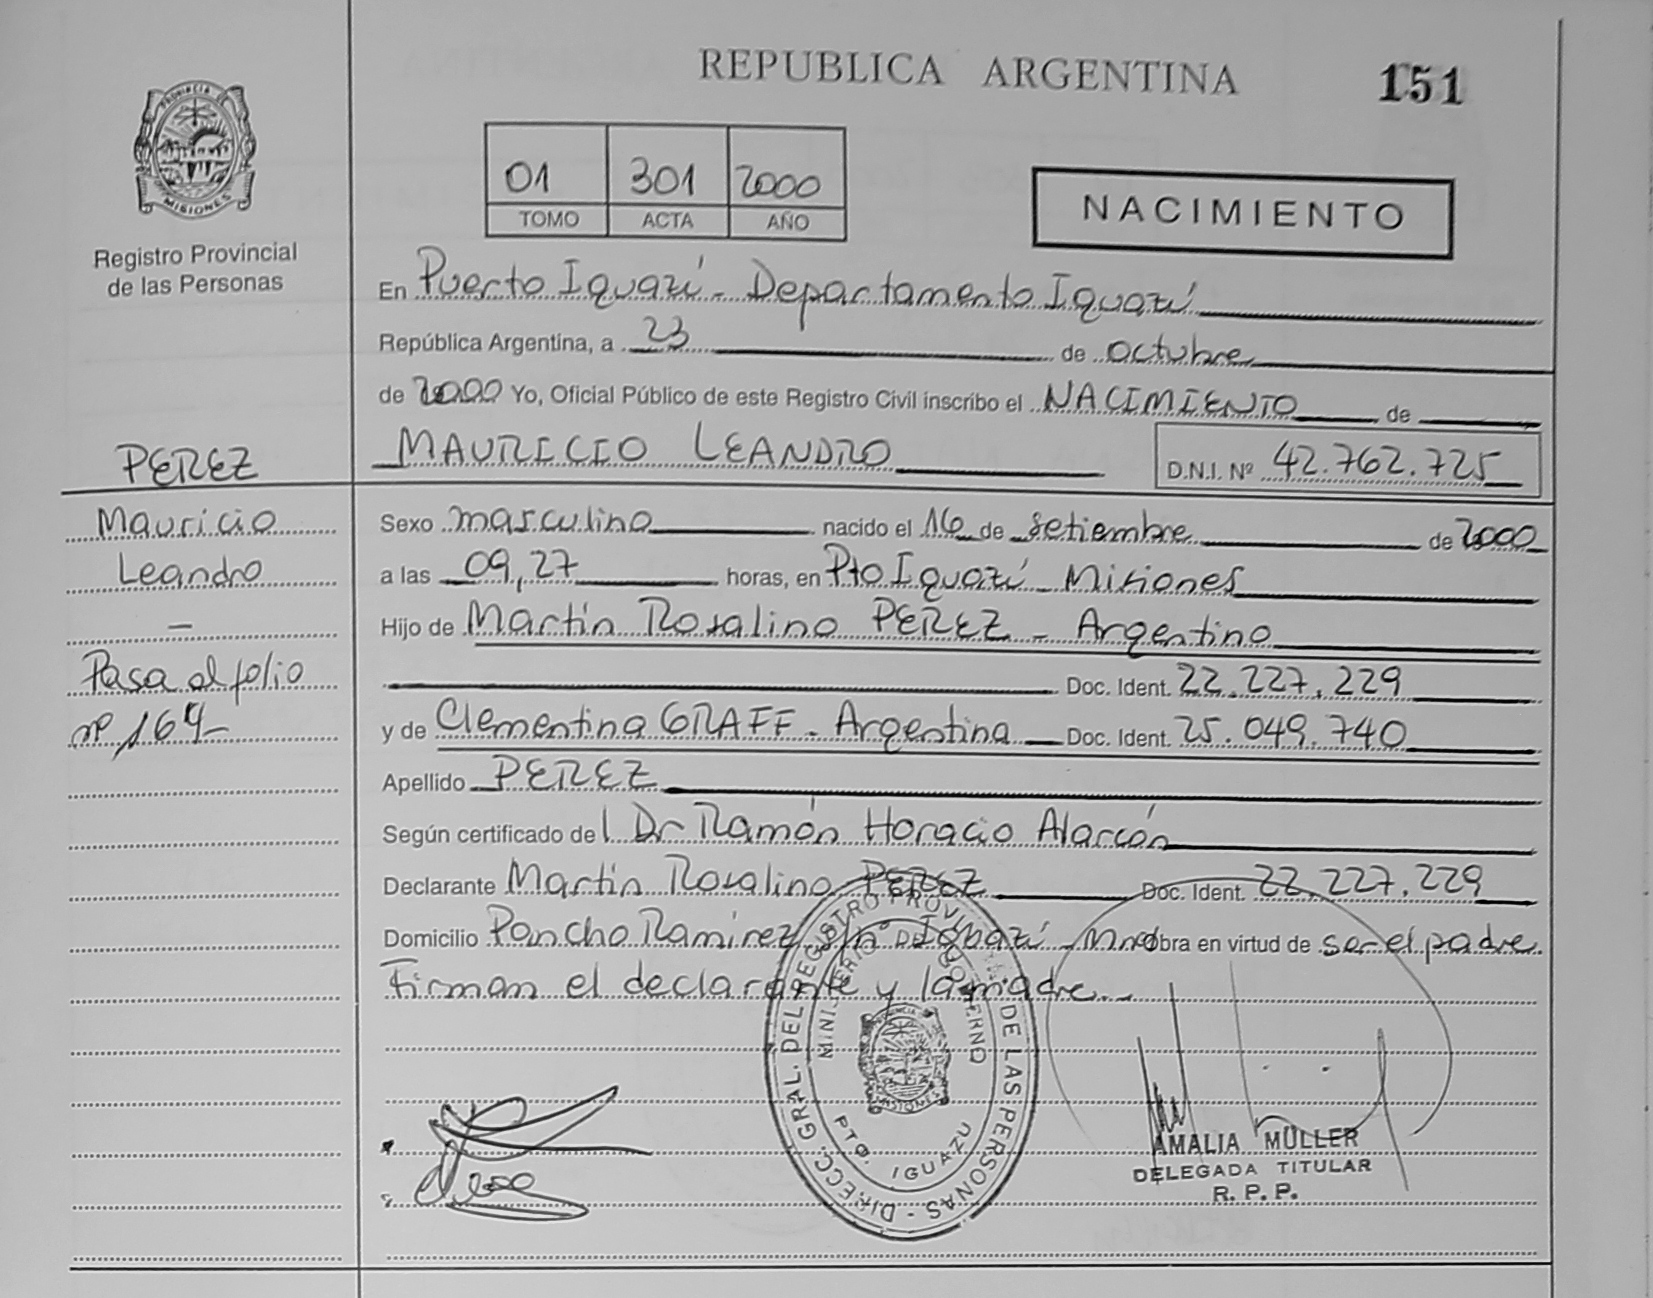 REPUBLICA ARGENTINA
151
PROVINCIA DE
MISIONES
Registro Provincial
de las Personas
01 301 2000
TOMO ACTA AÑO
NACIMIENTO
En Puerto Iguazú - Departamento Iguazú
República Argentina, a 23 de octubre
de 2000 Yo, Oficial Público de este Registro Civil inscribo el NACIMIENTO de
MAURICIO LEANDRO D.N.I. Nº 42.762.725
PEREZ
Mauricio
Leandro
-
Pasa al folio
nº 164-
Sexo masculino nacido el 16 de setiembre de 2000
a las 09,27 horas, en Pto Iguazú - Misiones
Hijo de Martín Rosalino PEREZ - Argentino
Doc. Ident. 22.227.229
y de Clementina GRAFF - Argentina Doc. Ident. 25.049.740
Apellido PEREZ
Según certificado de l Dr Ramón Horacio Alarcón
Declarante Martín Rosalino PEREZ Doc. Ident. 22.227.229
Domicilio Pancho Ramirez s/nº Iguazú - Mnes obra en virtud de ser el padre.
Firman el declarante y la madre.-
DIRECC. GRAL. DEL REGISTRO PROVINCIAL DE LAS PERSONAS -
MINISTERIO DE GOBIERNO
PROVINCIA DE
MISIONES
PTO. IGUAZU
AMALIA MÜLLER
DELEGADA TITULAR
R. P. P.